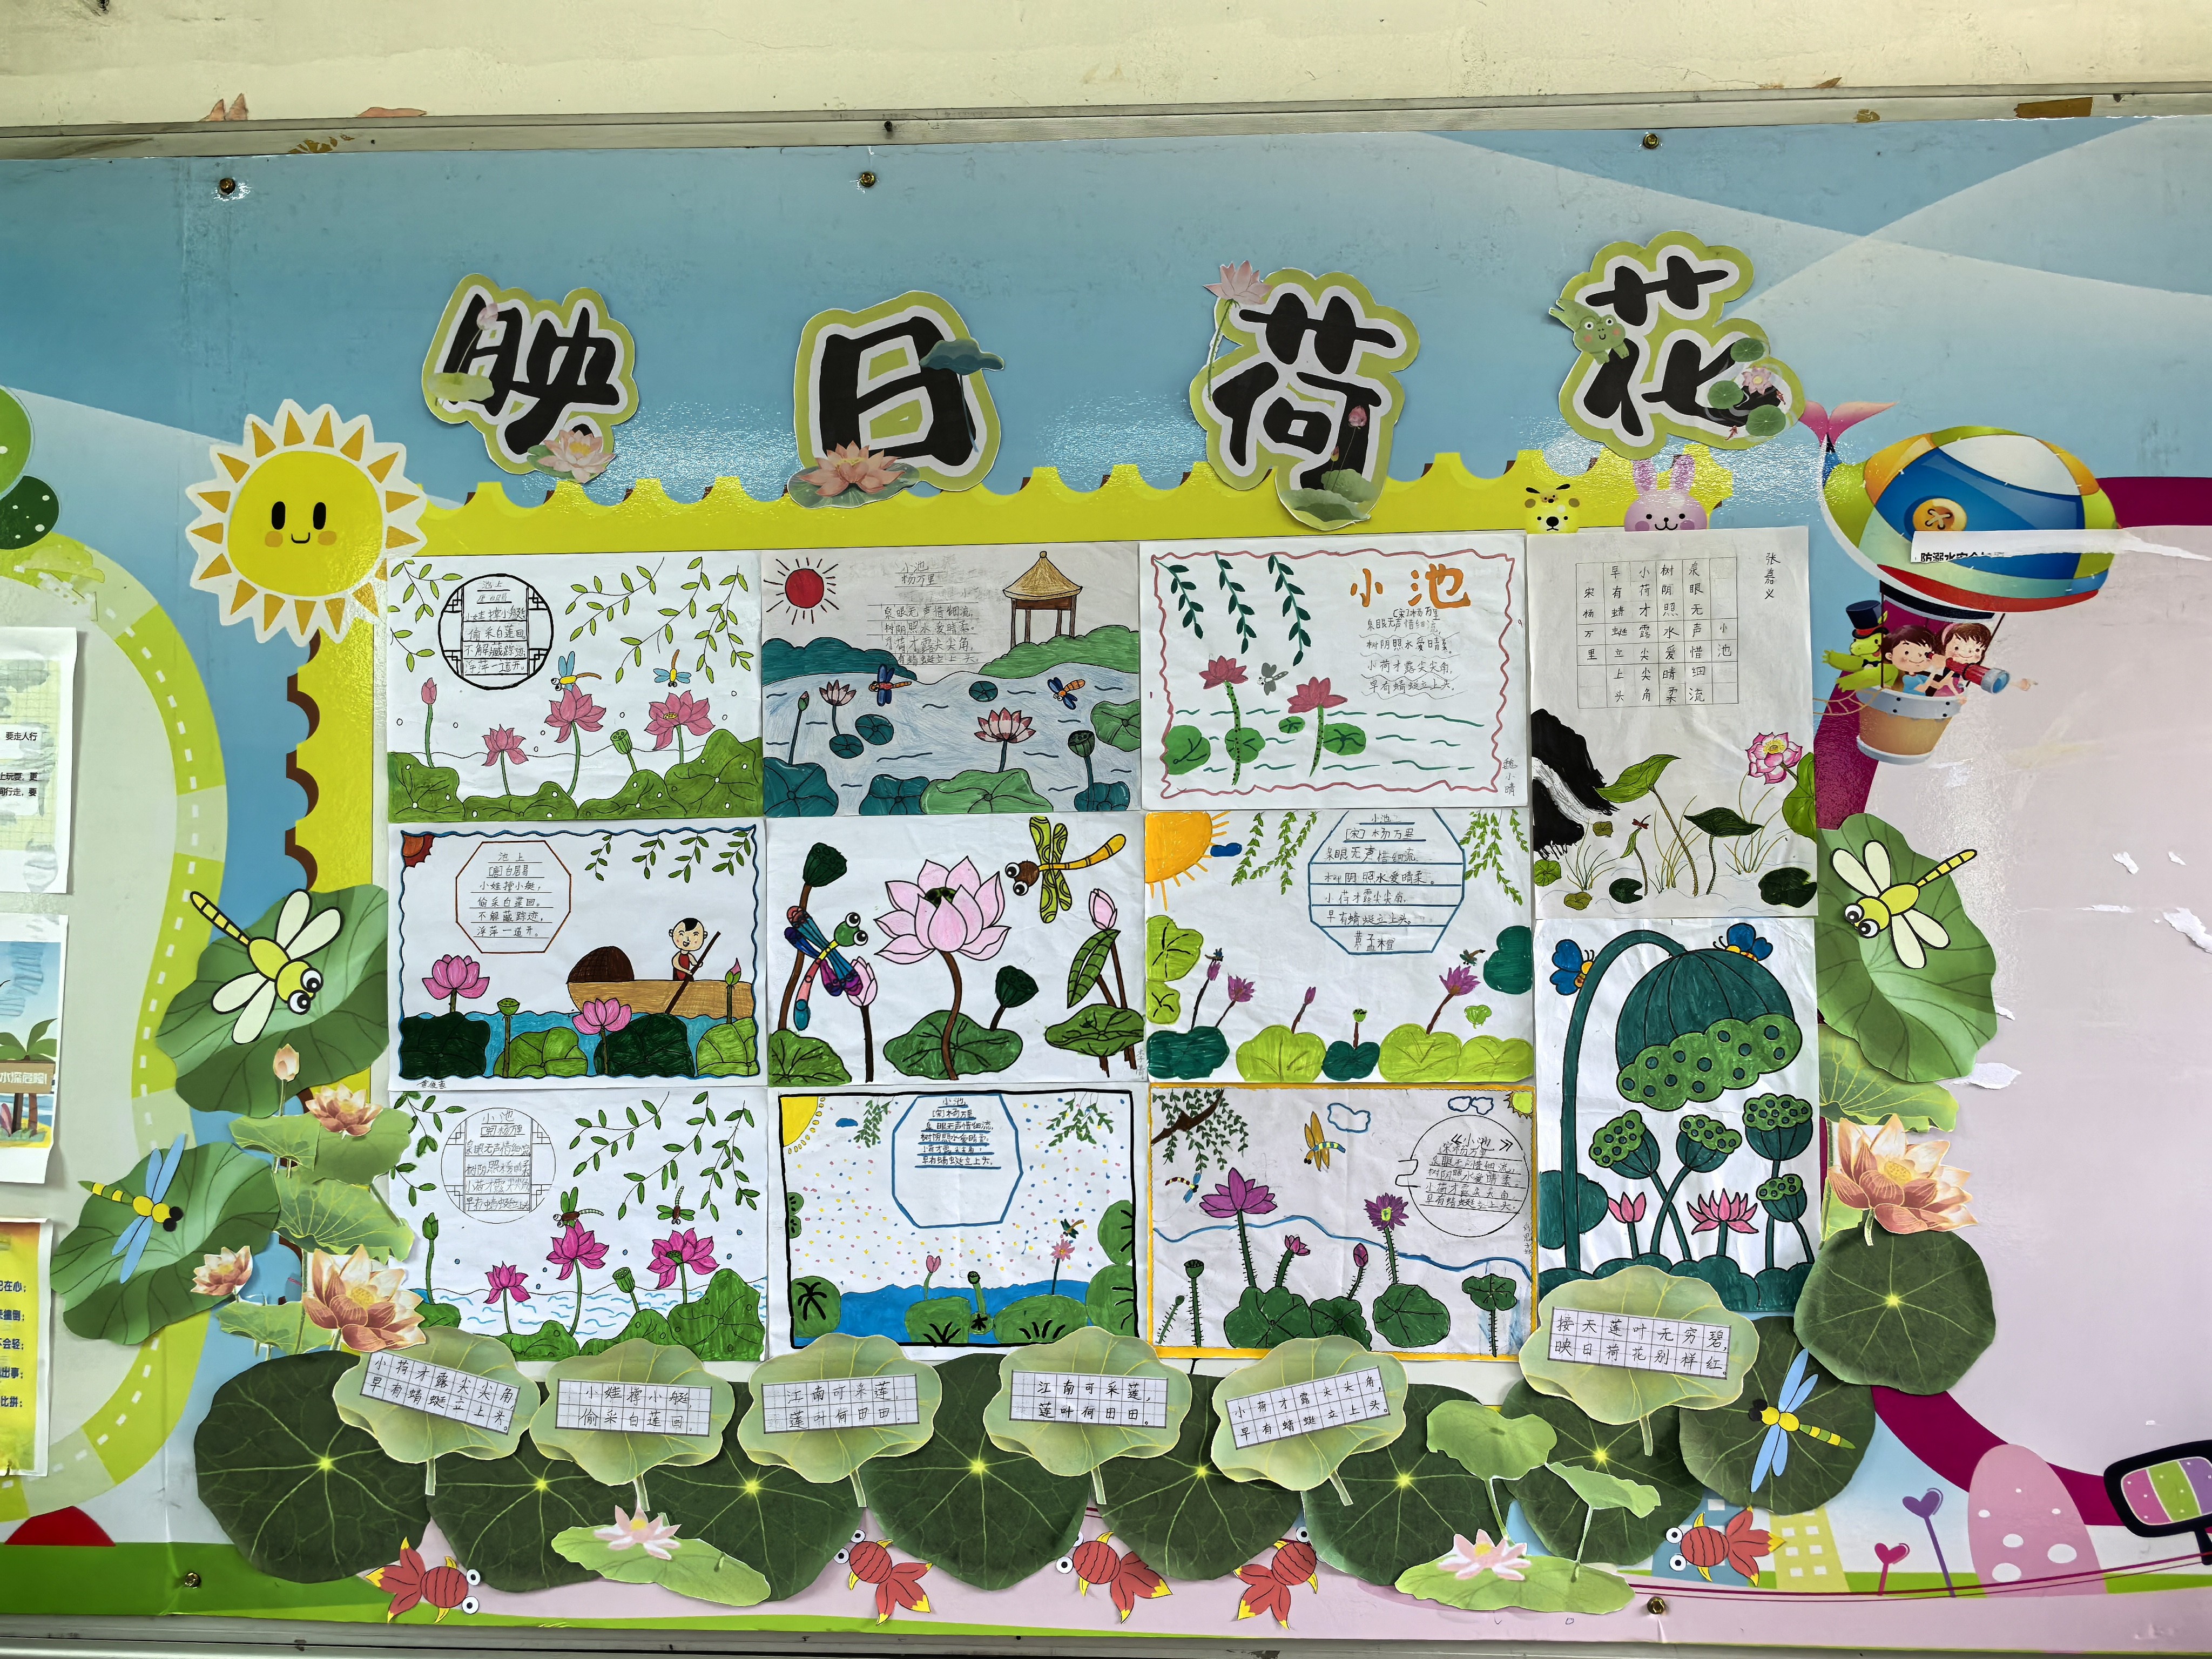 映日荷花
池上
小娃撑小艇
偷采白莲回
不解藏踪迹
浮萍一道开。
小池
杨万里
泉眼无声惜细流,
树阴照水爱晴柔。
小荷才露尖尖角,
早有蜻蜓立上头。
小池
[宋]杨万里
泉眼无声惜细流
树阴照水爱晴柔。
小荷才露尖尖角,
早有蜻蜓立上头。
魏小晴
张嘉义
小池
泉眼无声惜细流
树阴照水爱晴柔
小荷才露尖尖角
早有蜻蜓立上头
宋杨万里
防溺水安全
池上
[唐]白居易
小娃撑小艇,
偷采白莲回。
不解藏踪迹,
浮萍一道开。
小池
[宋]杨万里
泉眼无声惜细流
树阴照水爱晴柔。
小荷才露尖尖角
早有蜻蜓立上头。
小池
杨万里
泉眼无声惜细流
小荷才露尖尖角
早有蜻蜓立上头
小池
[宋]杨万里
泉眼无声惜细流,
树阴照水爱晴柔,
早有蜻蜓立上头,
《小池》
宋杨万里
泉眼无声惜细流,
树阴照水爱晴柔。
小荷才露尖尖角
早有蜻蜓立上头。
小荷才露尖尖角
早有蜻蜓立上头。
小娃撑小艇,
偷采白莲回。
江南可采莲,
莲叶何田田.
江南可采莲,
莲叶何田田.
小荷才露尖尖角,
早有蜻蜓立上头。
接天莲叶无穷碧,
映日荷花别样红。
要走人行
上玩耍,更
同行走,要
水深危险!
记在心;
不会轻;
出事;
比拼;